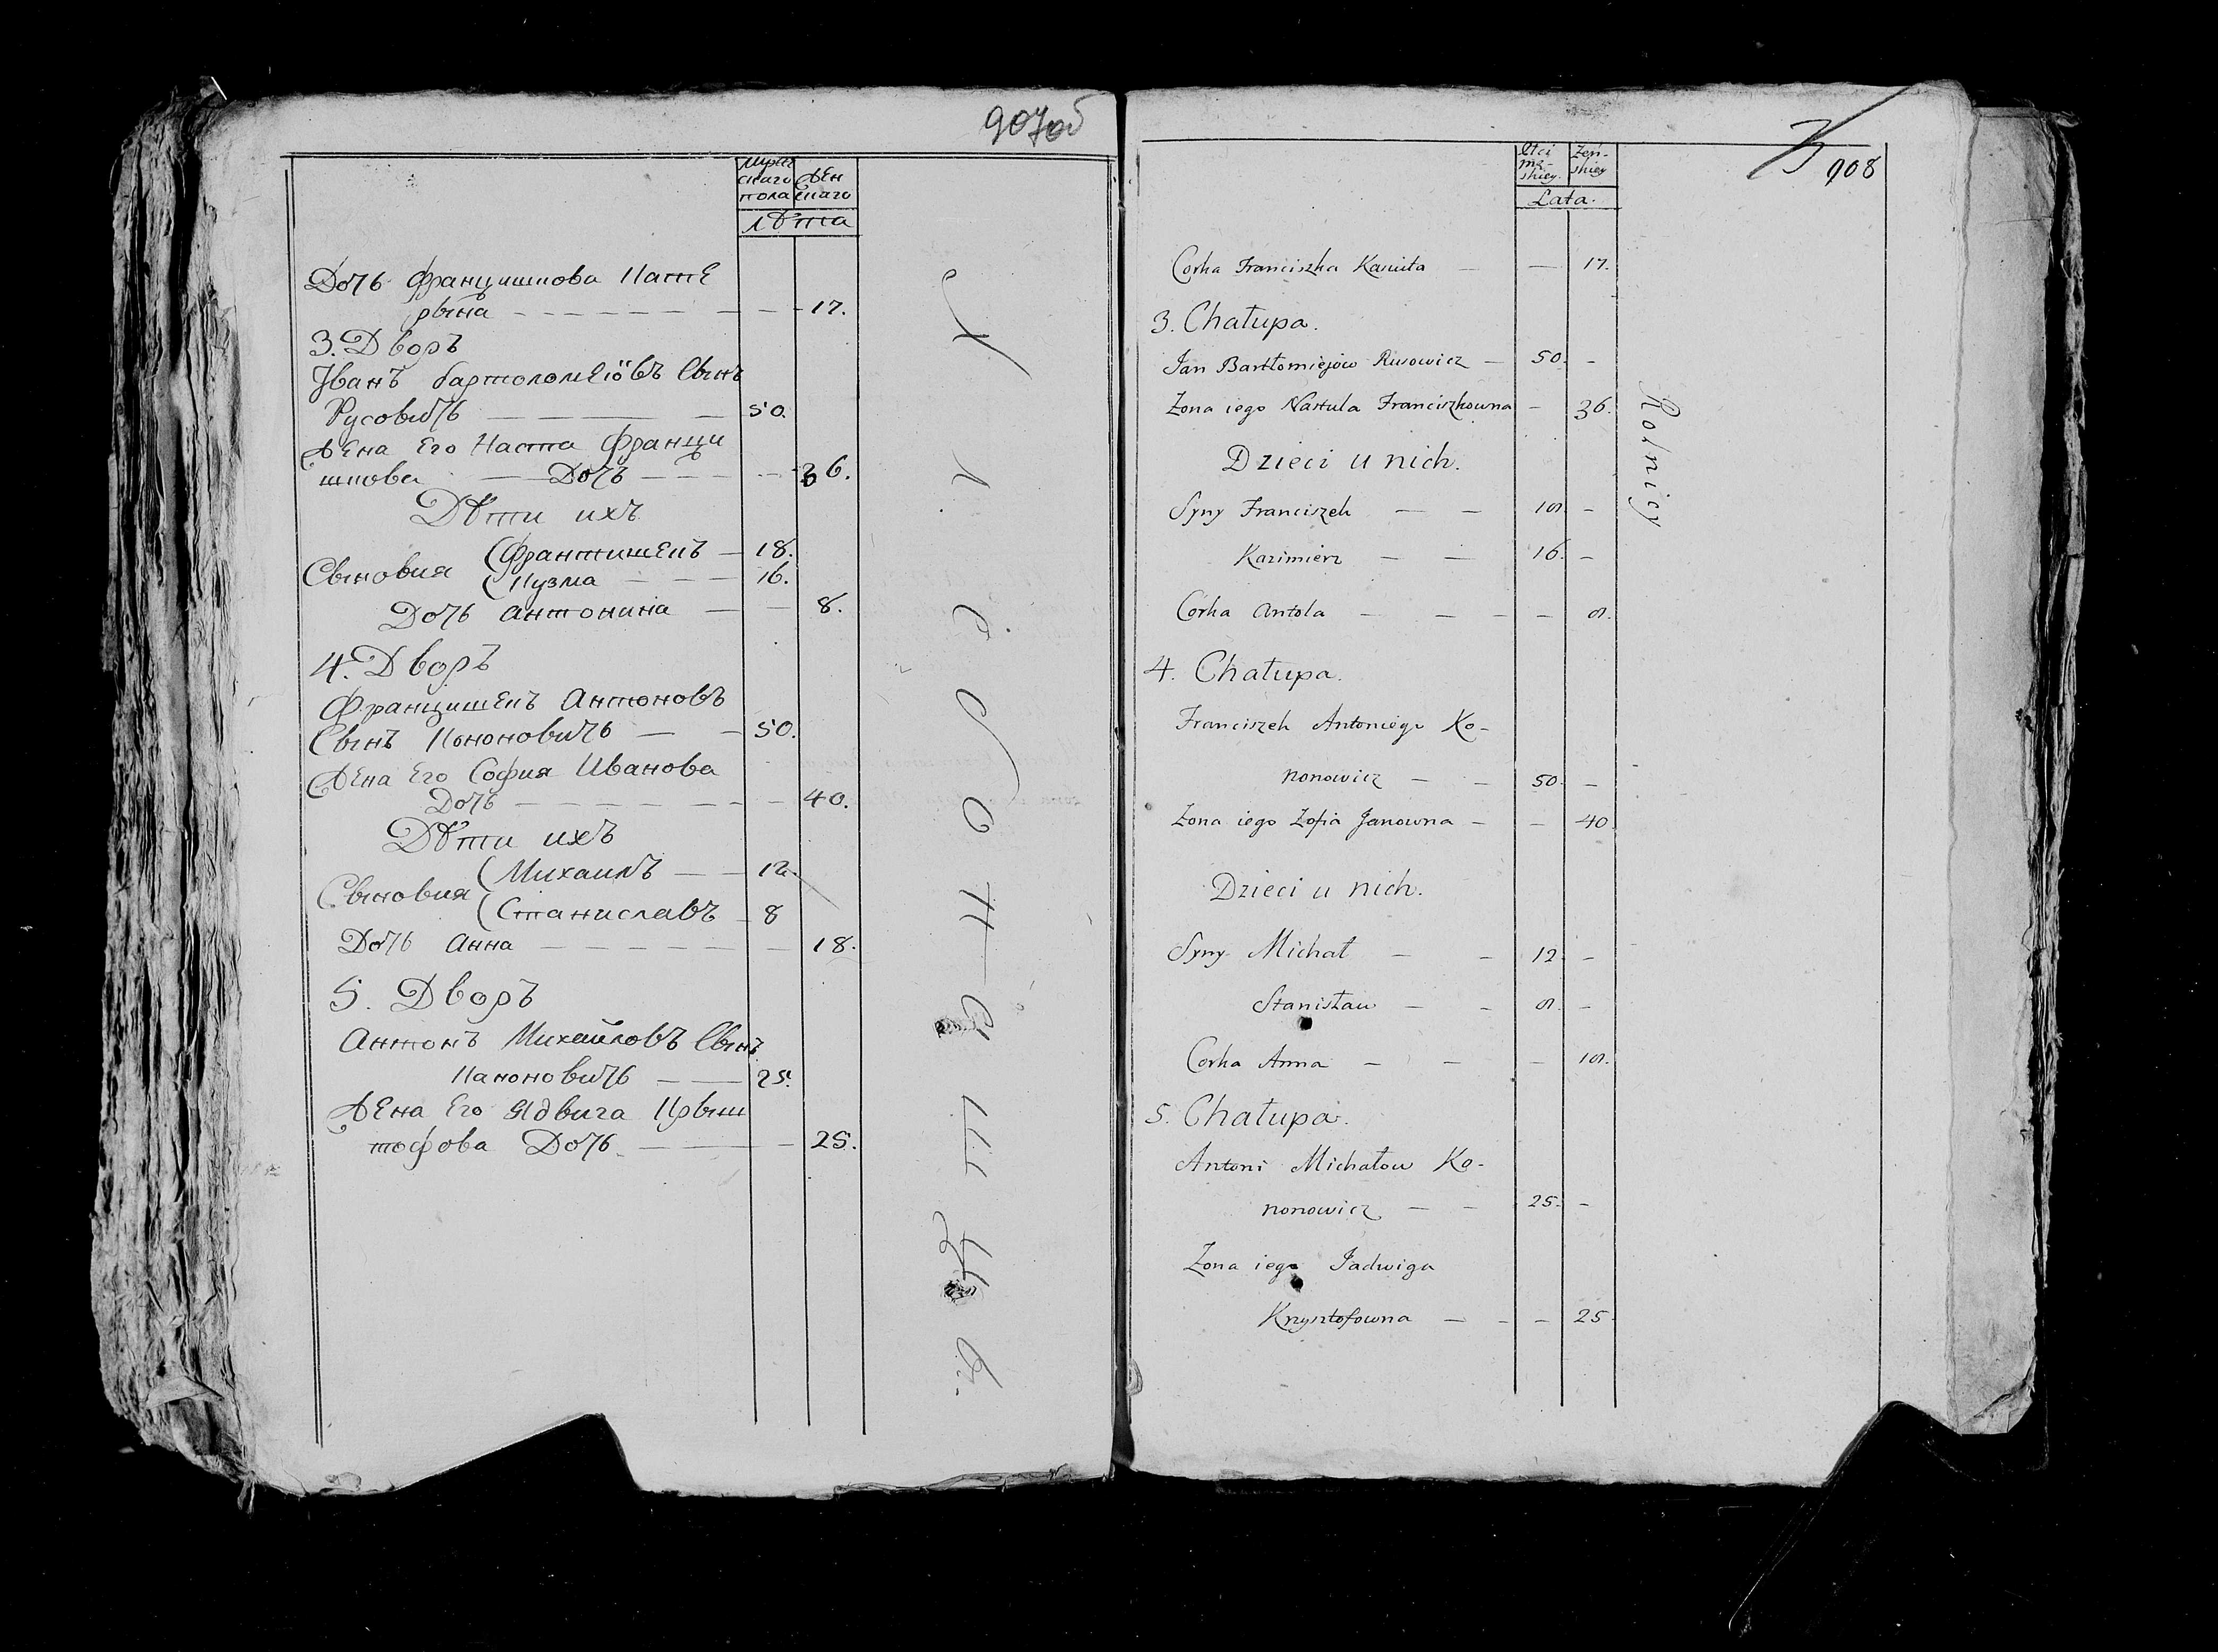 907об
мужескаго пола
женскаго
лѣта
Дочь Францишкова Кате
рына 17.
3. Дворъ
Іванъ бартоломеіовъ Сынъ
Русовичъ 50.
Жена Его Наста Франци
шкова Дочь 36.
Дѣти ихъ
Сыновия Франтишекъ 18.
Кузма 16.
Дочь антонина 8.
4. Дворъ
Францишекъ Антоновъ
Сынъ Кононовичъ 50.
Жена Его София Иванова
Дочь 40.
Дѣти ихъ
Сыновия Михаилъ 12.
Станиславъ 8
Дочь анна 18.
5. Дворъ
Антонъ Михайловъ Сынъ
Каноновичъ 25.
Жена Его Ядвига Крыш
тофова Дочь 25.
908
płci mę-
skiey.
żeń-
skiey
Lata.
Corka Franciszka 17.
3. Chałupa.
Jan Bartłomiejow Rusowicz 50.
Zona iego Nastula Franciszkowna 36.
Dzieci u nich.
Syny Franciszek 18.
Kazimierz 16.
Corka Antola 8.
4. Chałupa.
Franciszek Antoniego Ko-
nonowicz 50.
Zona iego Zofia Janowna 40.
Dzieci u nich.
Syny Michał 12.
Stanisław 8.
Corka Anna 18.
5. Chałupa.
Antoni Michałow Ko-
nonowicz 25.
Zona iego Jadwiga
Krzysztofowna 25.
Rolnicy